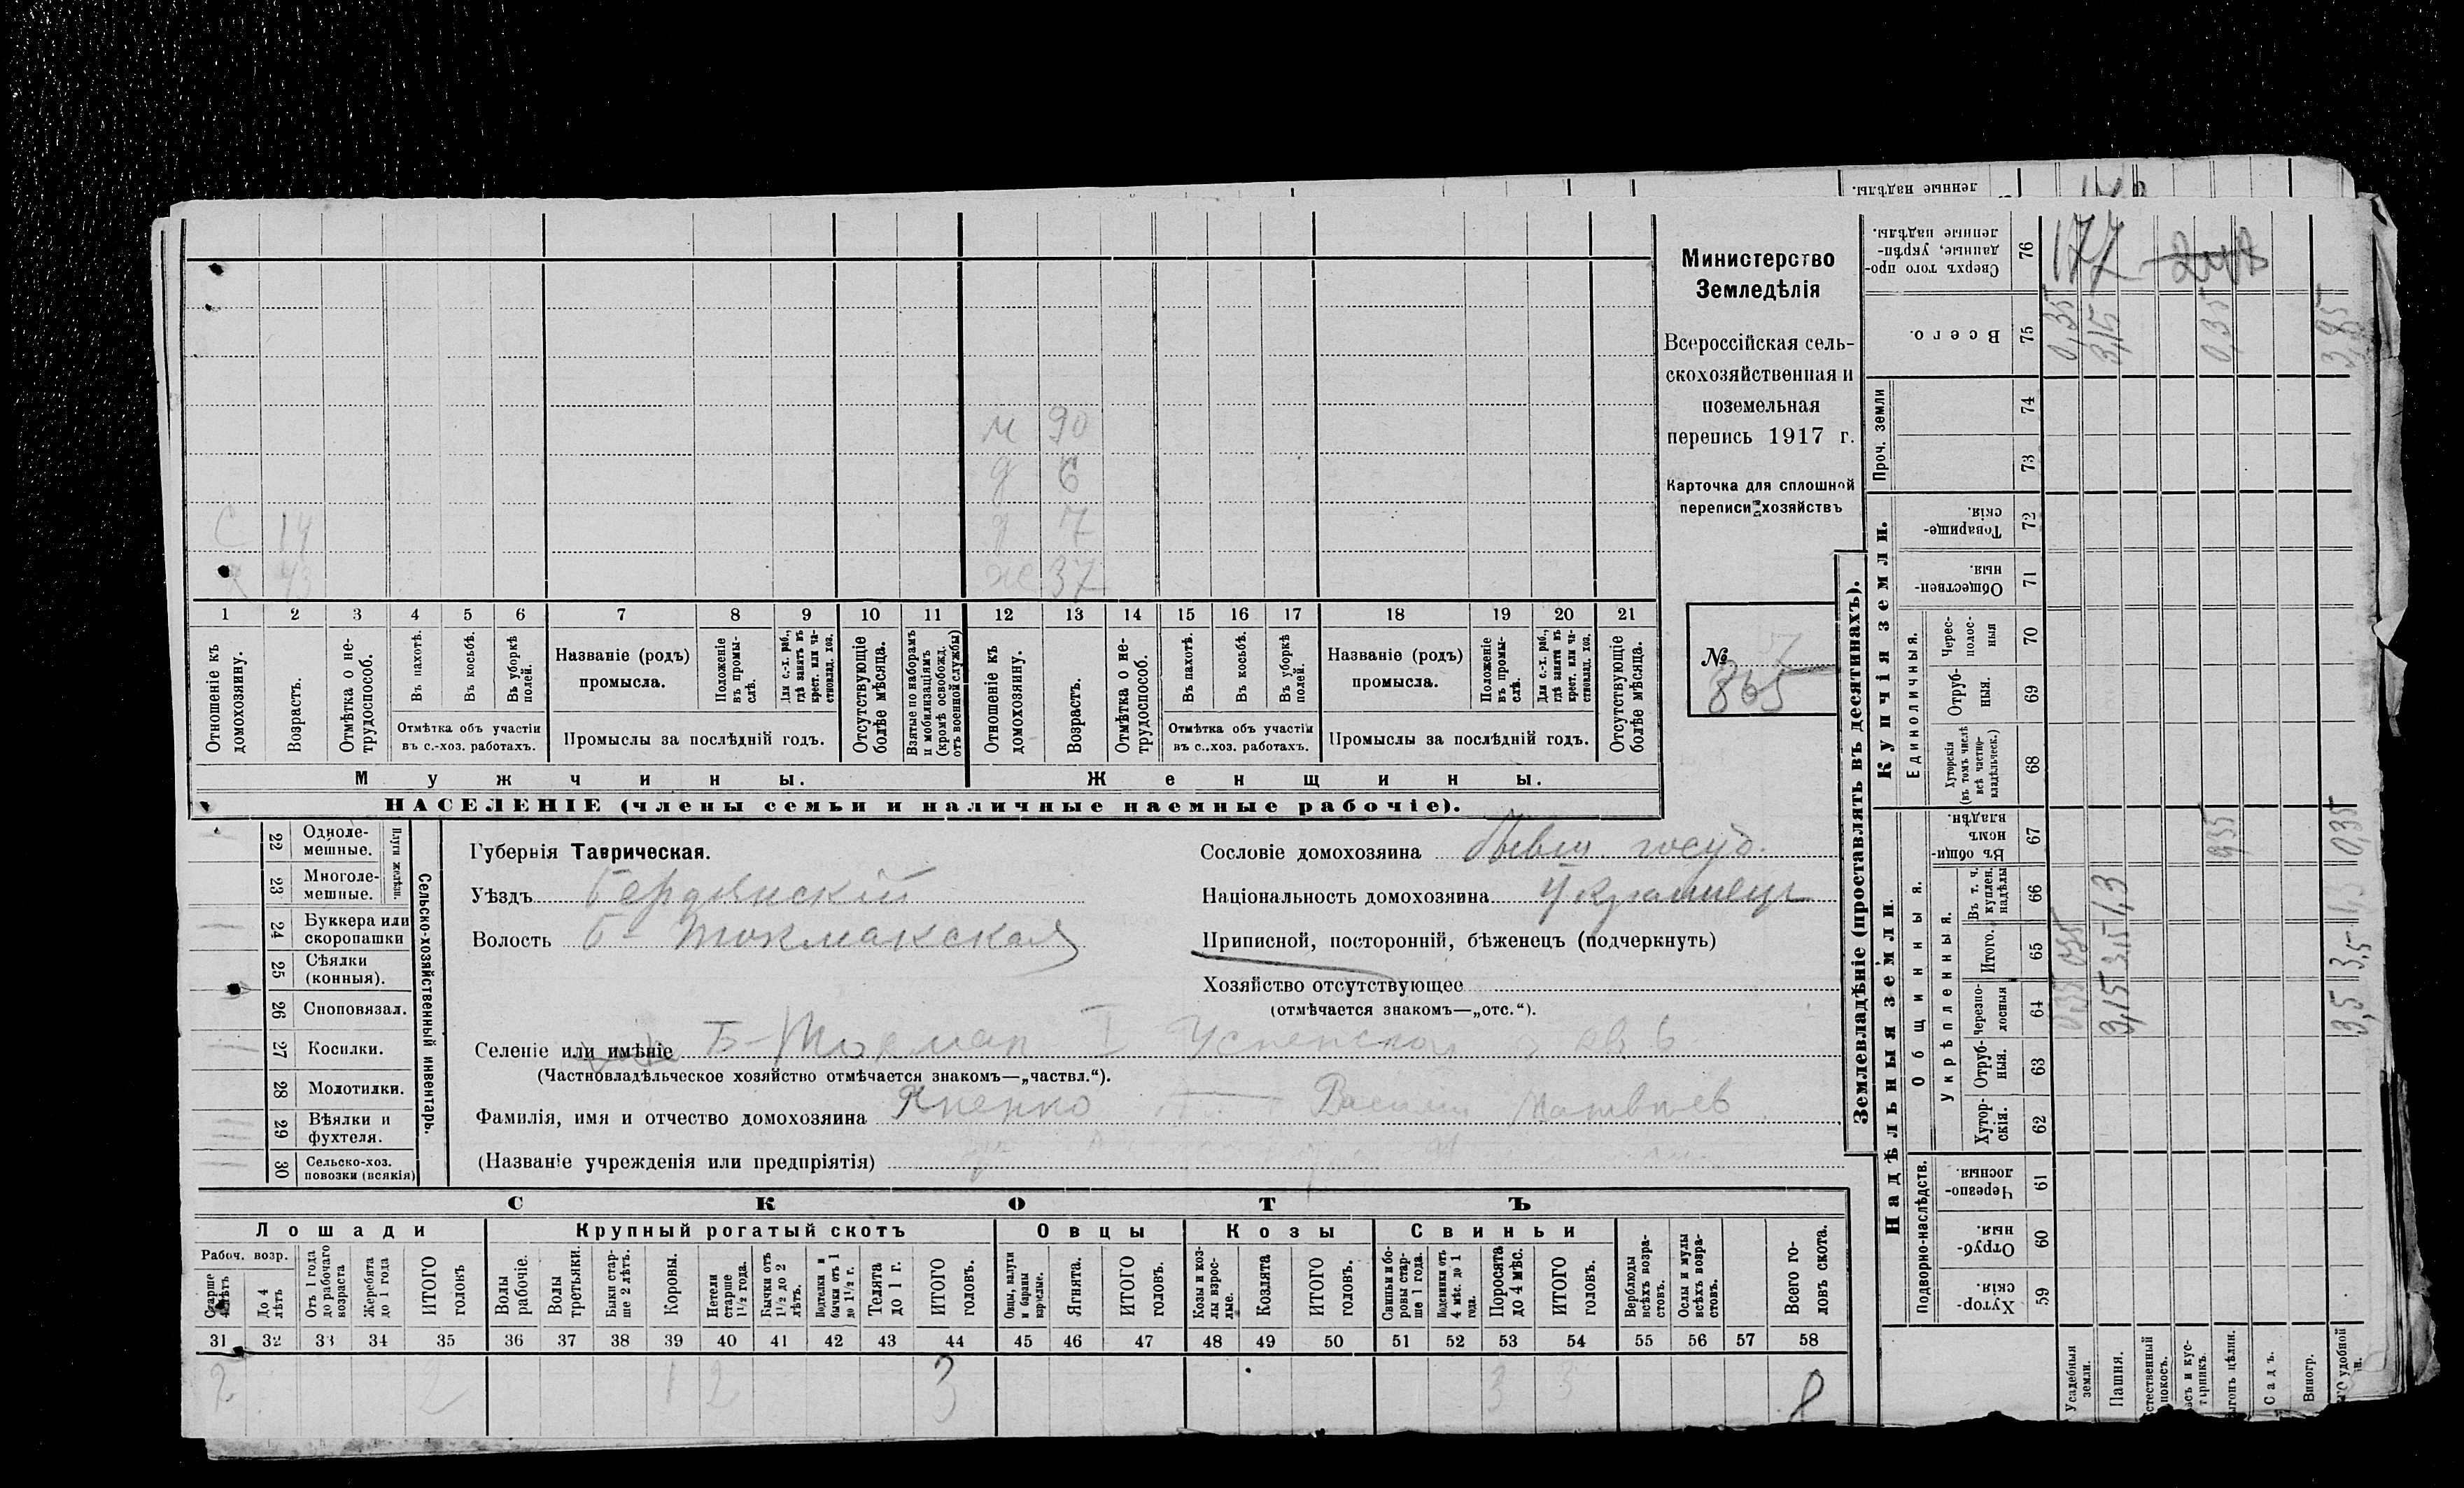 Министерство
Земледѣлія
Всероссійская сель-
скохозяйственная и
поземельная
перепись 1917 г.
Карточка для сплошной
переписи хозяйствъ
№ 57
865
м 90
д 6
С 14 д 7
43 ж 37
1 2 3 4 5 6 7 8 9 10 11 12 13 14 15 16 17 18 19 20 21
Отношеніе къ домохозяину.
Возрастъ.
Отмѣтка о не-трудоспособ.
Въ пахотѣ.
Въ косьбѣ.
Въ уборкѣ полей.
Отмѣтка объ участіи
въ с.-хоз. работахъ.
Названіе (родъ)
промысла.
Положеніе въ промы-слѣ.
Для с.-х. раб., гдѣ занятъ въ крест. или ча-стновлад. хоз.
Промыслы за послѣдній годъ.
Отсутствующіе болѣе мѣсяца.
Взятые по наборамъ и мобилизаціямъ (кромѣ освобожд. отъ военной службы)
Отношеніе къ домохозяину.
Возрастъ.
Отмѣтка о не-трудоспособ.
Въ пахотѣ.
Въ косьбѣ.
Въ уборкѣ полей.
Отмѣтка объ участіи
въ с.-хоз. работахъ.
Названіе (родъ)
промысла.
Положеніе въ промы-слѣ.
Для с.-х. раб., гдѣ занята въ крест. или ча-стновлад. хоз.
Промыслы за послѣдній годъ.
Отсутствующіе болѣе мѣсяца.
Мужчины. Женщины.
НАСЕЛЕНІЕ (члены семьи и наличные наемные рабочіе).
22 Одноле-мешные.
23 Многоле-мешные.
Плуги желѣзн.
24 Буккера или скоропашки
25 Сѣялки (конныя).
26 Сноповязал.
27 Косилки.
28 Молотилки.
29 Вѣялки и фухтеля.
30 Сельско-хоз. повозки (всякія)
Сельско-хозяйственный инвентарь.
Губернія Таврическая.
Уѣздъ Бердянскій
Волость Б-Токмакская
Сословіе домохозяина бывш. госуд.
Національность домохозяина Украинец
Приписной, посторонній, бѣженецъ (подчеркнуть)
Хозяйство отсутствующее
(отмѣчается знакомъ—„отс.“).
Селеніе или имѣніе Б-Токмак I Успенской кв 6
(Частновладѣльческое хозяйство отмѣчается знакомъ—„частвл.“).
Фамилія, имя и отчество домохозяина Яненко Матвѣев
(Названіе учрежденія или предпріятія)
СКОТЪ
Лошади Крупный рогатый скотъ Овцы Козы Свиньи
Рабоч. возр.
Старше 4 лѣтъ
До 4 лѣтъ
Отъ 1 года до рабочаго возраста
Жеребята до 1 года
ИТОГО головъ
Волы рабочіе.
Волы третьяки.
Быки стар-ше 2 лѣтъ.
Коровы.
Нетели старше 1½ года.
Бычки отъ 1½ до 2 лѣтъ.
Подтелки и бычки отъ 1 до 1½ г.
Телята до 1 г.
ИТОГО головъ.
Овцы, валухи и бараны взрослые.
Ягнята.
ИТОГО головъ.
Козы и коз-лы взрос-лые.
Козлята
ИТОГО головъ.
Свиньи и бо-ровы стар-ше 1 года.
Подсвинки отъ 4 мѣс. до 1 года.
Поросята до 4 мѣс.
ИТОГО головъ.
Верблюды всѣхъ возра-стовъ.
Ослы и мулы всѣхъ возра-стовъ.
Всего го-ловъ скота.
31 32 33 34 35 36 37 38 39 40 41 42 43 44 45 46 47 48 49 50 51 52 53 54 55 56 57 58
2 2 1 2 3 3 3 8
Землевладѣніе (проставлять въ десятинахъ).
Надѣльныя земли. Купчія земли. Проч. земли
Подворно-наслѣдств.
Общинныя.
Укрѣпленныя.
Единоличныя.
Хутор-скія. 59
Отруб-ныя. 60
Черезпо-лосныя. 61
Хутор-скія. 62
Отруб-ныя. 63
Черезпо-лосныя 64
Итого. 65
Въ т. ч. куплен. надѣлы 66
Въ общин-номъ владѣн. 67
Хуторскія (въ томъ числѣ всѣ частно-владѣльческ.) 68
Отруб-ныя. 69
Черес-полос-ныя 70
Обществен-ныя. 71
Товарище-скія. 72
73
74
Всего. 75
Сверхъ того про-данные, укрѣп-ленные надѣлы. 76
ленные надѣлы.
Усадебныя земли. 0,35 0,35 0,35
Пашня. 3,15 3,15 1,3 3,15
выгонъ цѣлин. 0,35 0,35
Садъ.
Виногр.
удобной 3,5 3,5 1,3 0,35 3,85
177